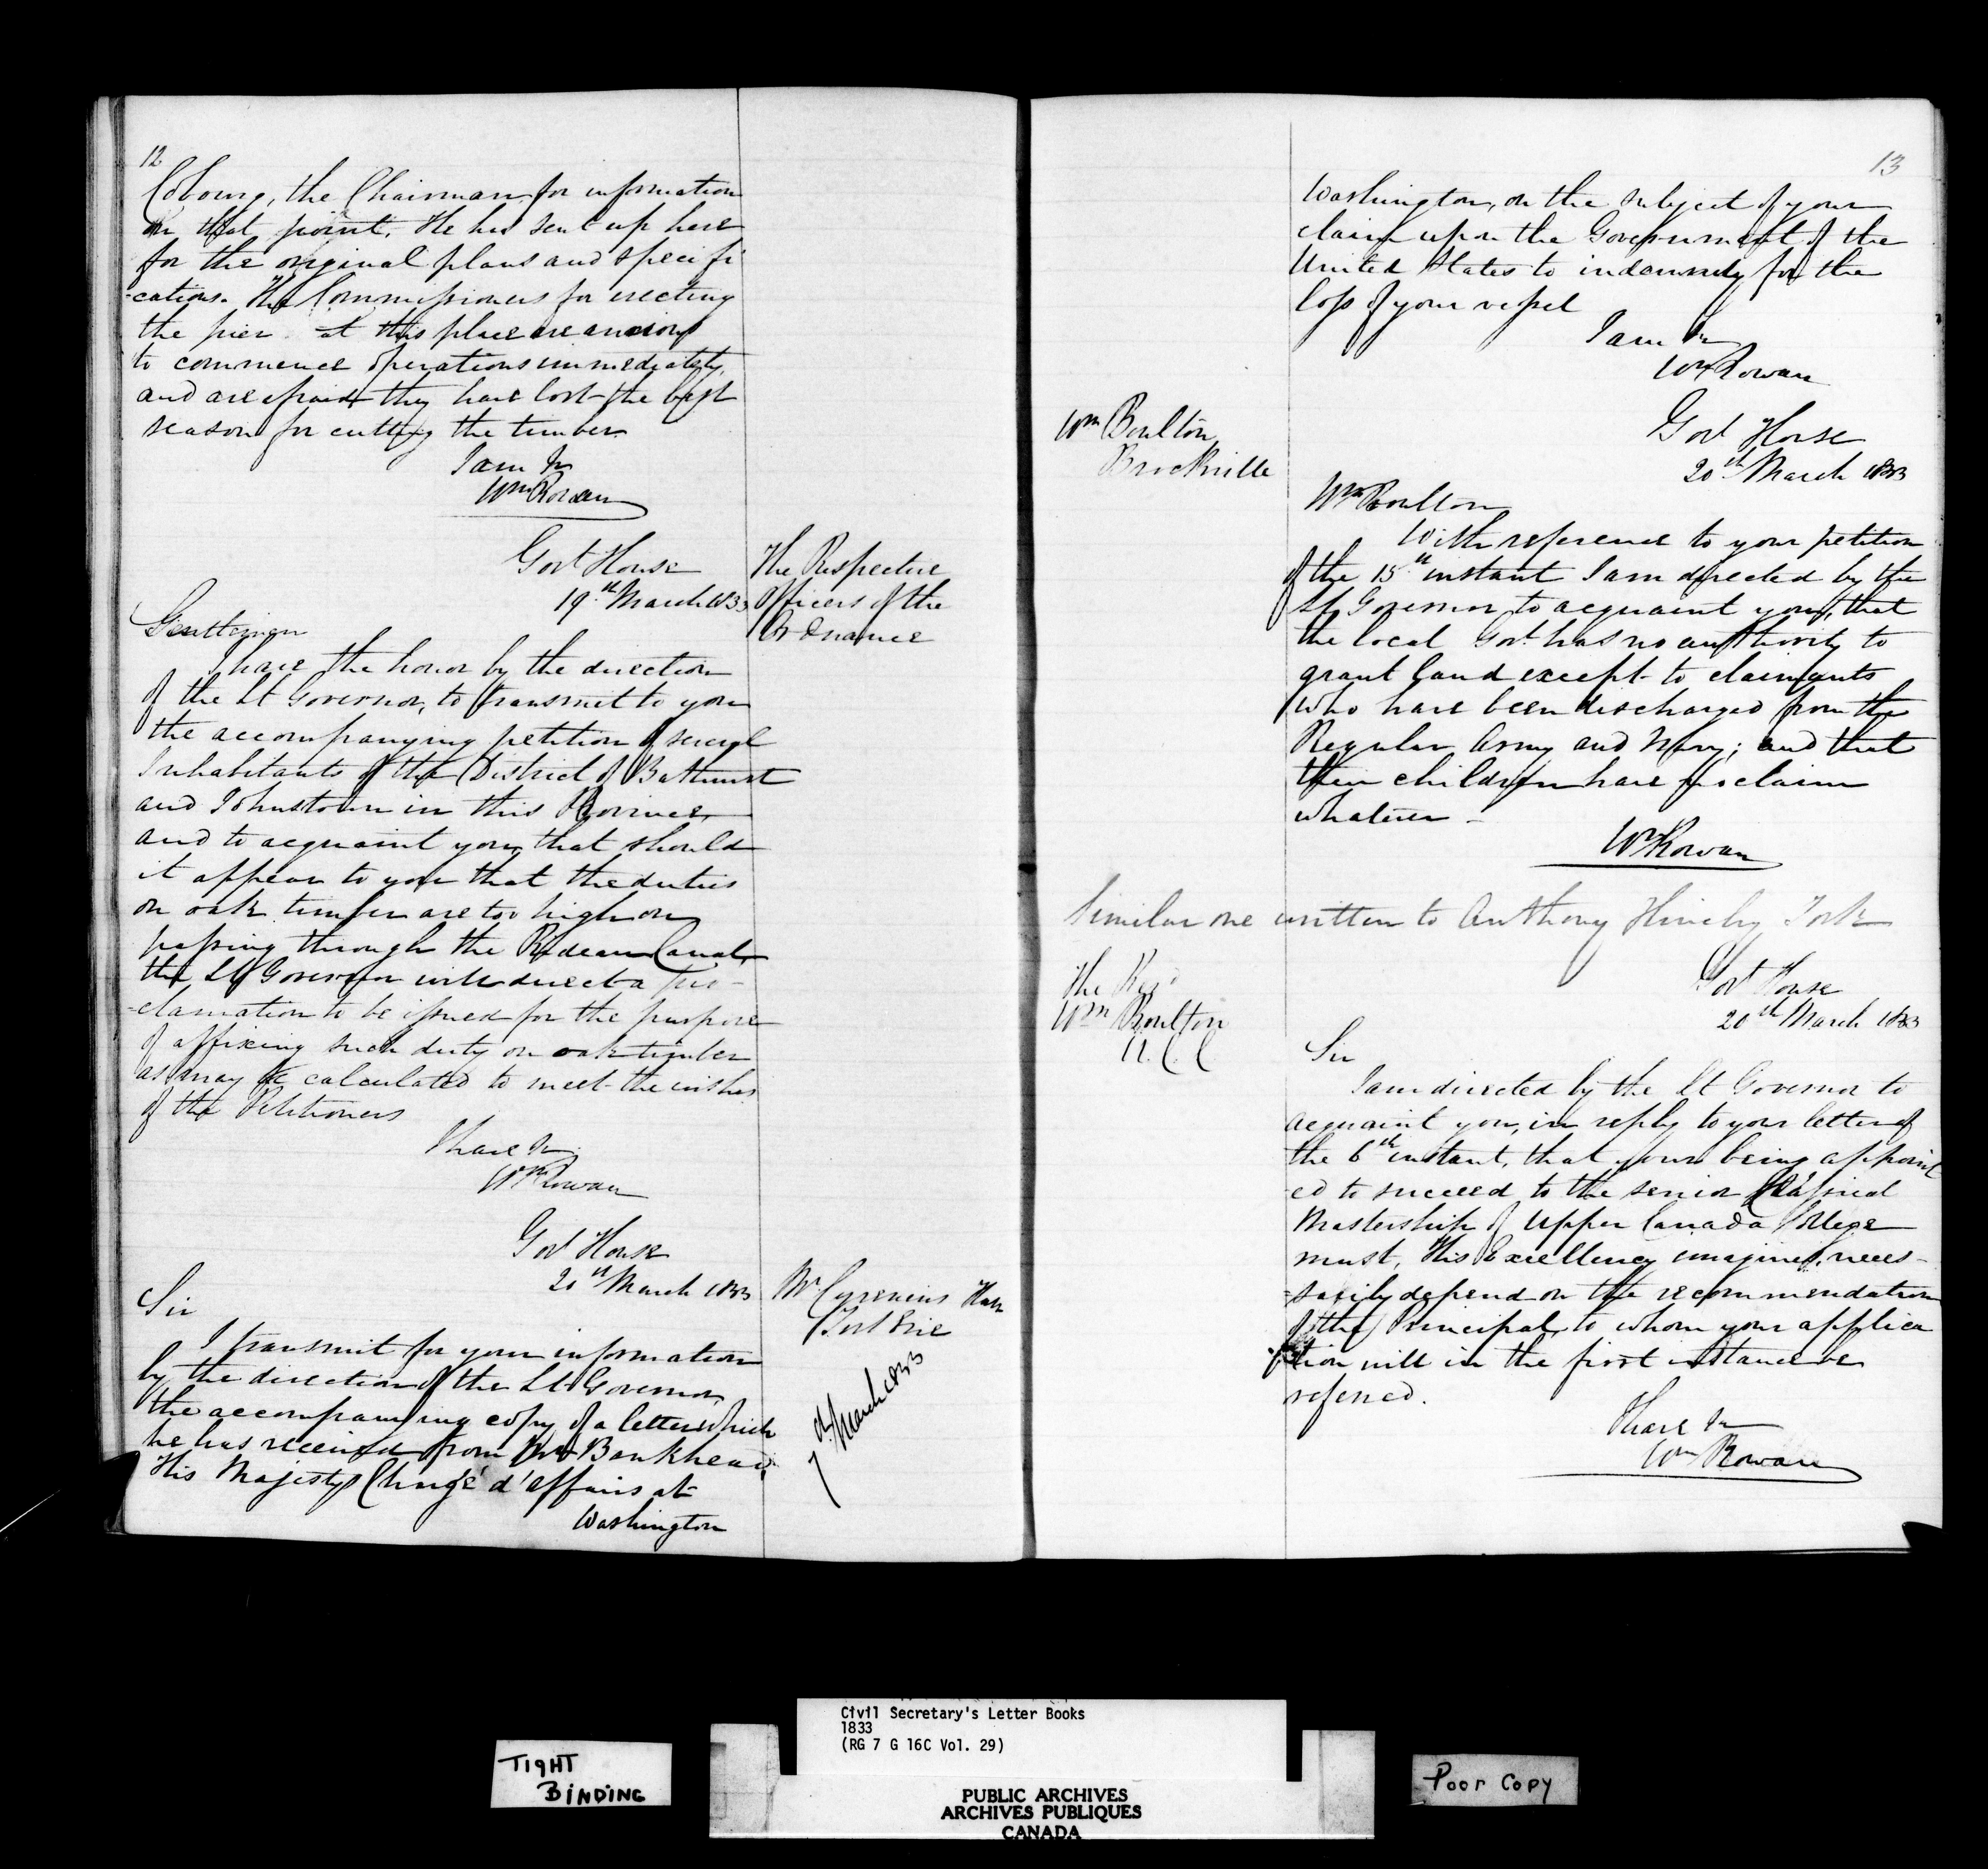 12
Cobourg, the Chairman for information
on that point. He has sent up here
for the original plans and specifi
-cations. The Commissioners for erecting
the pier at this place are anxious
to commence operations immediately,
and are afraid they have lost the best
season for cutting the timber.
I am &c
Wm Rowan
Govt House
19th March 1833
The Respective
Officers of the
Ordnance
Gentlemen
I have the honor by the direction
of the Lt Governor, to transmit to you
the accompanying petition of several
Inhabitants of the District of Bathurst
and Johnstown in this Province,
and to acquaint you, that should
it appear to you that the duties
on oak timber are too high on
passing through the Rideau Canal,
the Lt Governor will direct a Pro-
-clamation to be issued for the purpose
of affixing such duty on oak timber
as may be calculated to meet the wishes
of the Petitioners
I have &c
Wm Rowan
Govt House
20th March 1833
Mr Cyrenius Hall
Fort Erie
Sir
I transmit for your information
by the direction of the Lt Governor,
the accompanying copy of a letter which
he has received from Mr Bankhead,
His Majestys Chargé d'affairs at
Washington
7 March 1833
13
Washington, on the subject of your
claim upon the Government of the
United States to indemnity for the
loss of your vessel
I am &c
Wm Rowan
Wm Boulton
Brockville
Govt House
20th March 1833
Wm Boulton
With reference to your petition
of the 15th instant I am directed by the
Lt Governor to acquaint you, that
the local Govt has no authority to
grant land except to claimants
who have been discharged from the
Regular Army and Navy; and that
their children have no claim
whatever -
Wm Rowan
Similar one written to Anthony York
The Revd
Wm Boulton
U.C.C
Govt House
20th March 1833
Sir
I am directed by the Lt Governor to
acquaint you, in reply to your letter of
the 6th instant, that your being appoint
-ed to succeed to the senior Classical
Mastership of Upper Canada College
must, His Excellency imagines, neces-
-sarily depend on the recommendation
of the Principal, to whom your applica
-tion will in the first instance be
referred.
I have &c
Wm Rowan
TIGHT
BINDING
Civil Secretary's Letter Books
1833
(RG 7 G 16C Vol. 29)
PUBLIC ARCHIVES
ARCHIVES PUBLIQUES
CANADA
Poor Copy